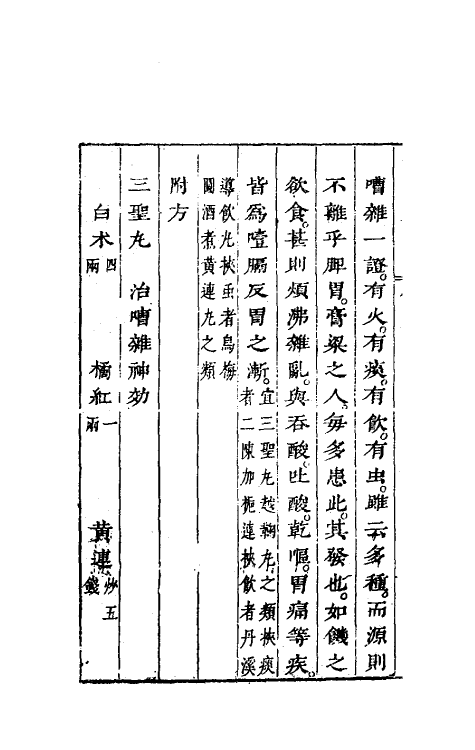 嘈雜一證。有火。有痰。有飲。有虫。雖云多種。而源則
不離乎脾胃。膏梁之人。每多患此。其發也。如饑之
欲食。甚則煩沸雜亂。與吞酸吐酸。乾嘔。胃痛等疾。
皆爲噎膈反胃之漸。宜三聖丸越鞠丸之類挾痰
者二陳加梔連挾飲者丹溪
導飲丸挾虫者烏梅
圓酒煮黃連丸之類
附方
三聖丸　治嘈雜神効
白术四兩　橘紅一兩　黃連炒五錢